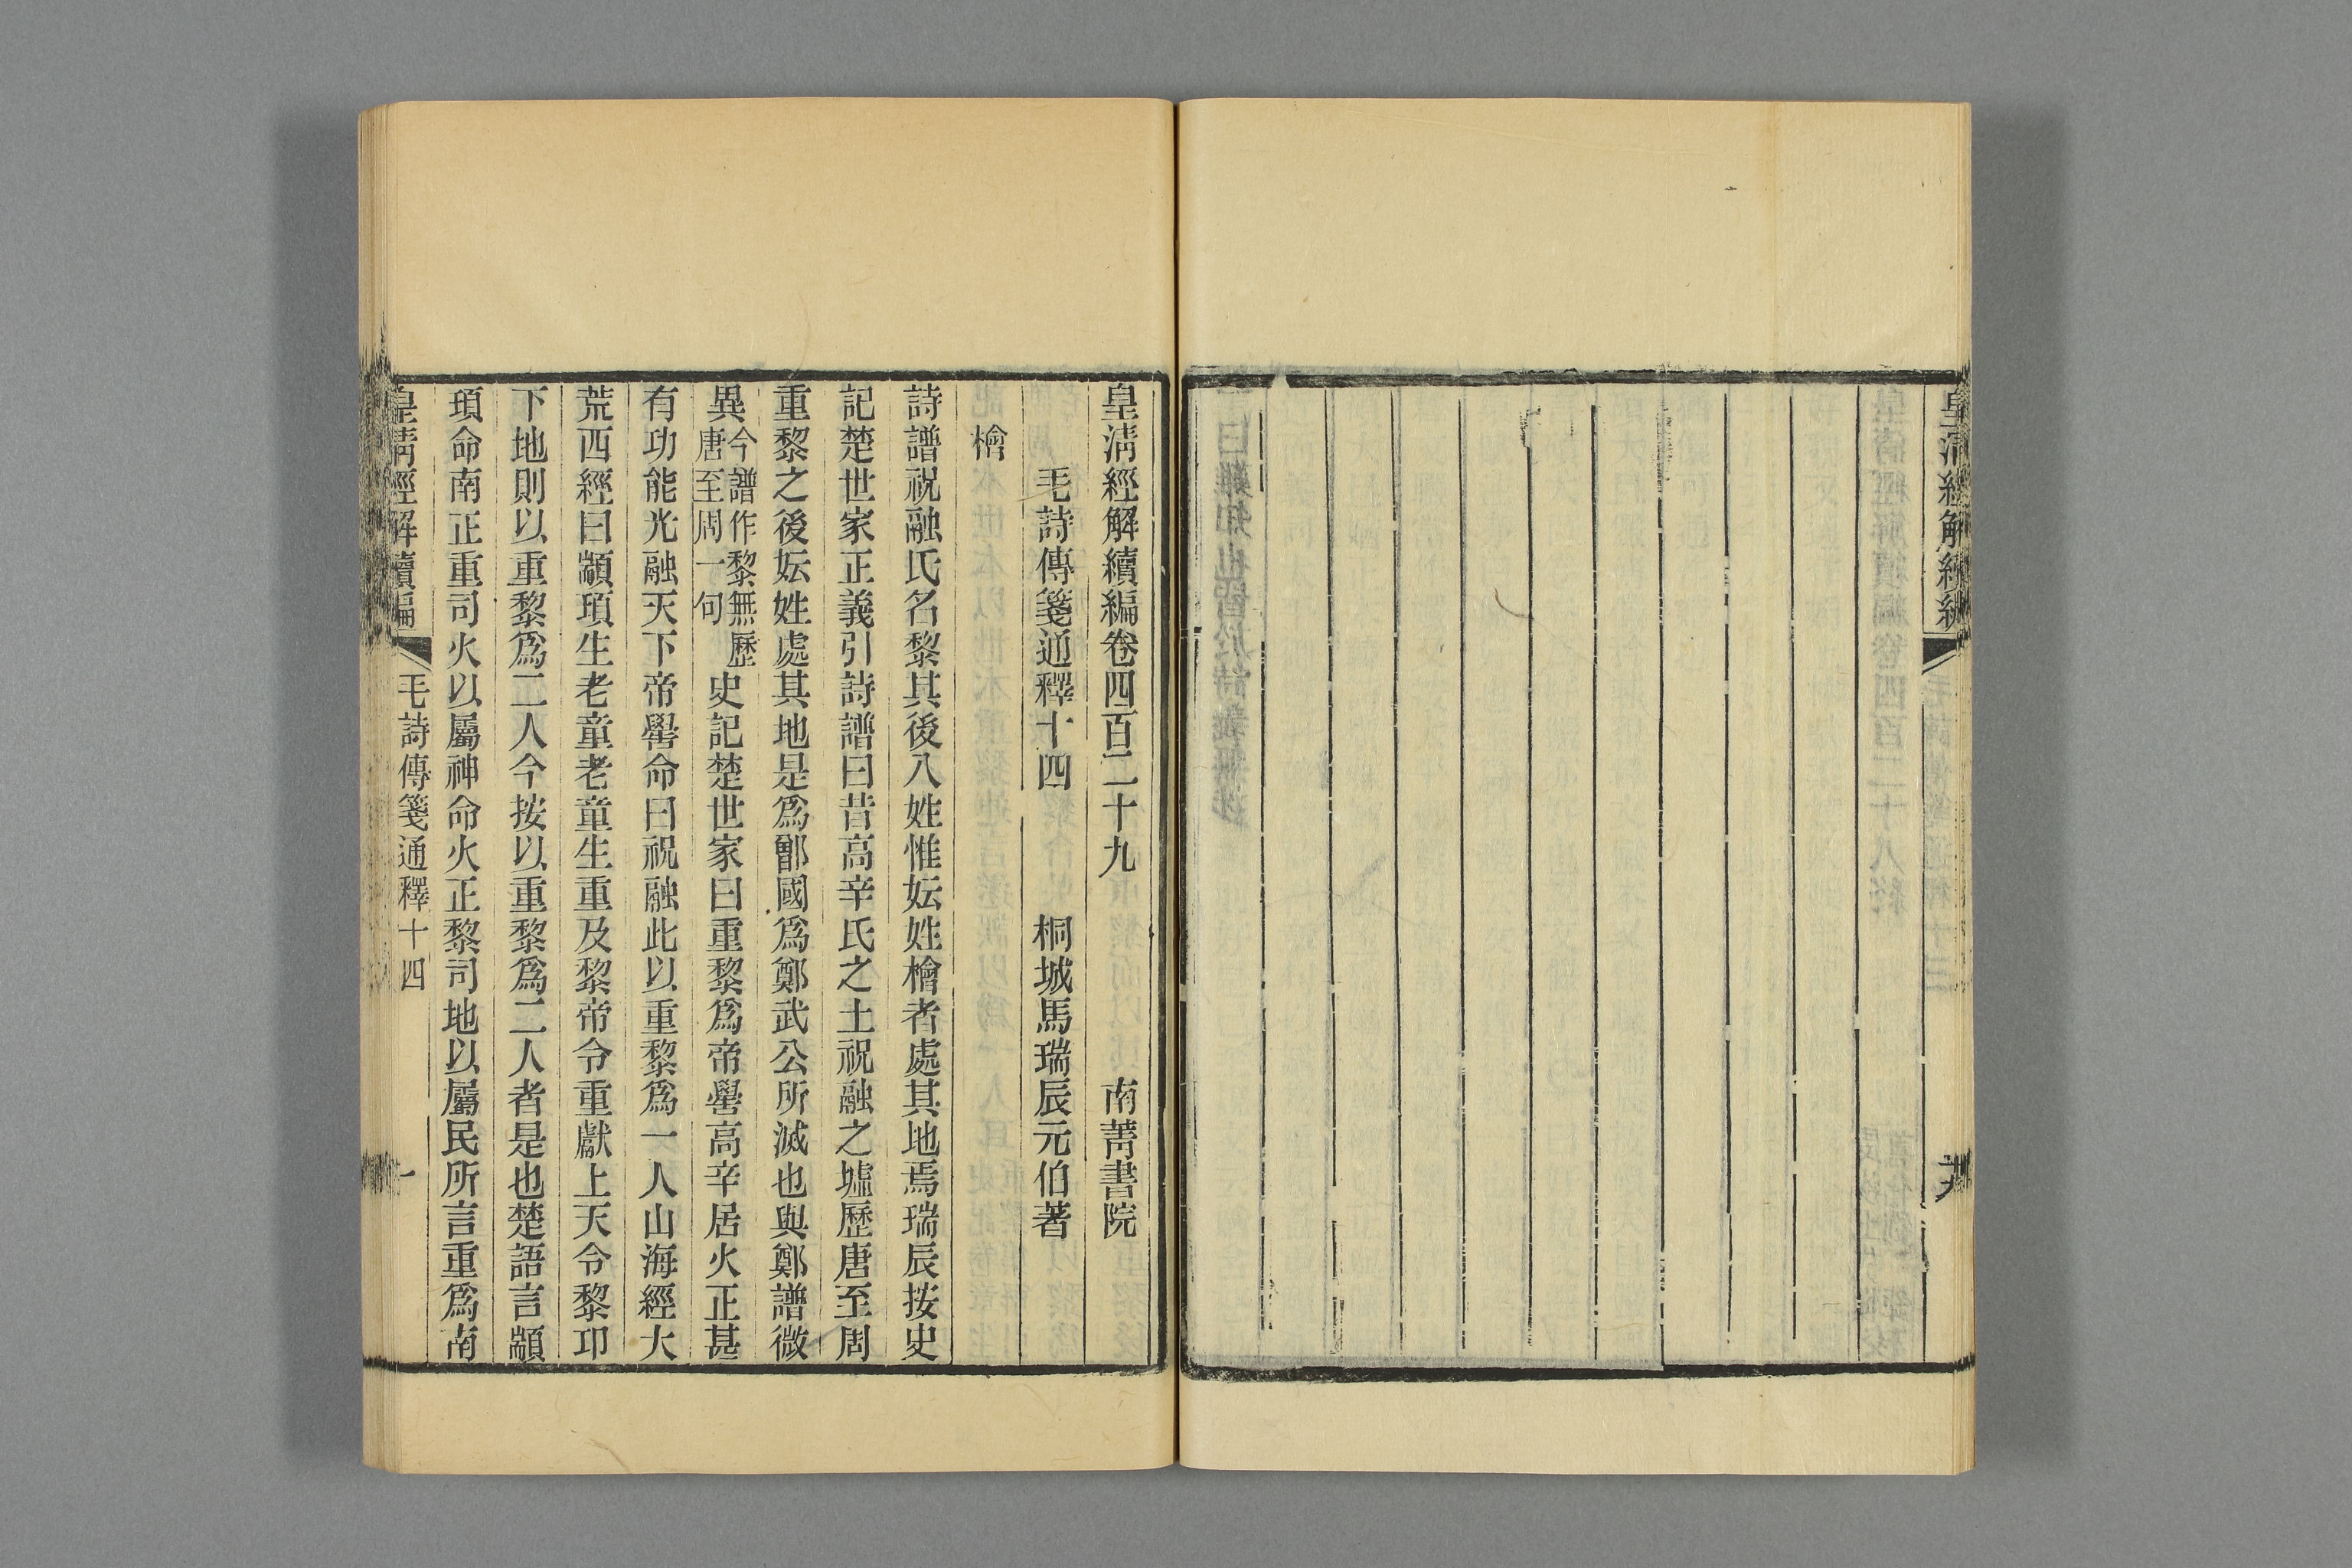 皇清經解續編
皇清經解續編卷四百二十九　南菁書院
毛詩傳箋通釋十四　桐城馬瑞辰元伯著
檜
詩譜祝融氏名黎其後八姓惟妘姓檜者處其地焉瑞辰按史
記楚世家正義引詩譜曰昔高辛氏之土祝融之墟歷唐至周
重黎之後妘姓處其地是爲鄶國爲鄭武公所滅也與鄭譜微
異今譜作黎無歷唐至周一句史記楚世家曰重黎爲帝嚳高辛居火正甚
有功能光融天下帝嚳命曰祝融此以重黎爲一人山海經大
荒西經曰顓頊生老童老童生重及黎帝令重獻上天令黎卭
下地則以重黎爲二人今按以重黎爲二人者是也楚語言顓
頊命南正重司火以屬神命火正黎司地以屬民所言重爲南
皇清經解續編　毛詩傳箋通釋十四　一